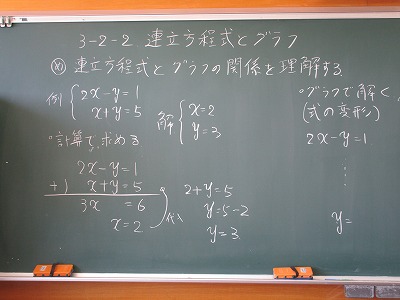 3-2-2 連立方程式とグラフ
㋱ 連立方程式とグラフの関係を理解する
例 { 2x-y=1
x+y=5
解 { x=2
y=3
・計算で求める
2x-y=1
+) x+y=5
3x =6
x=2
代入
2+y=5
y=5-2
y=3
・グラフで解く
(式の変形)
2x-y=1
⋮
y=